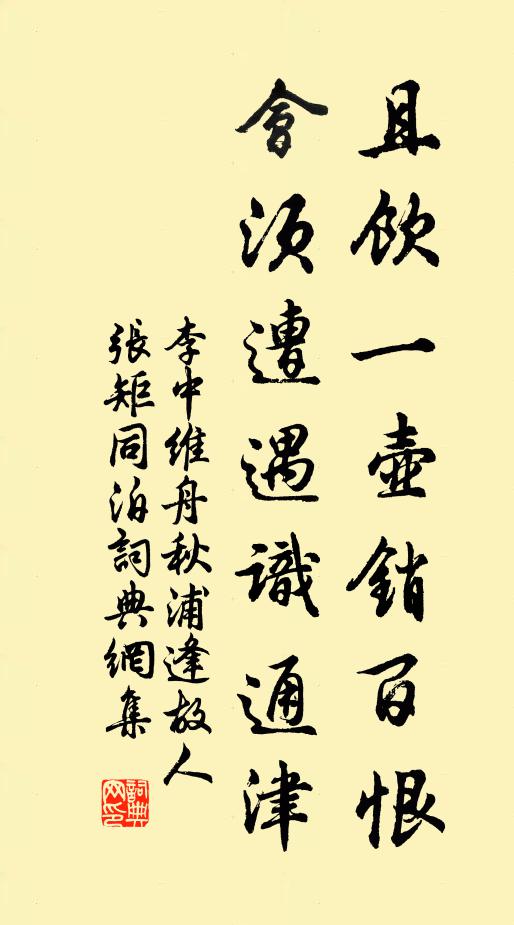 且飲一壺銷百恨
會須遭遇識通津
李中維舟秋浦逢故人
張矩同泊詞典網集
詞典
网印